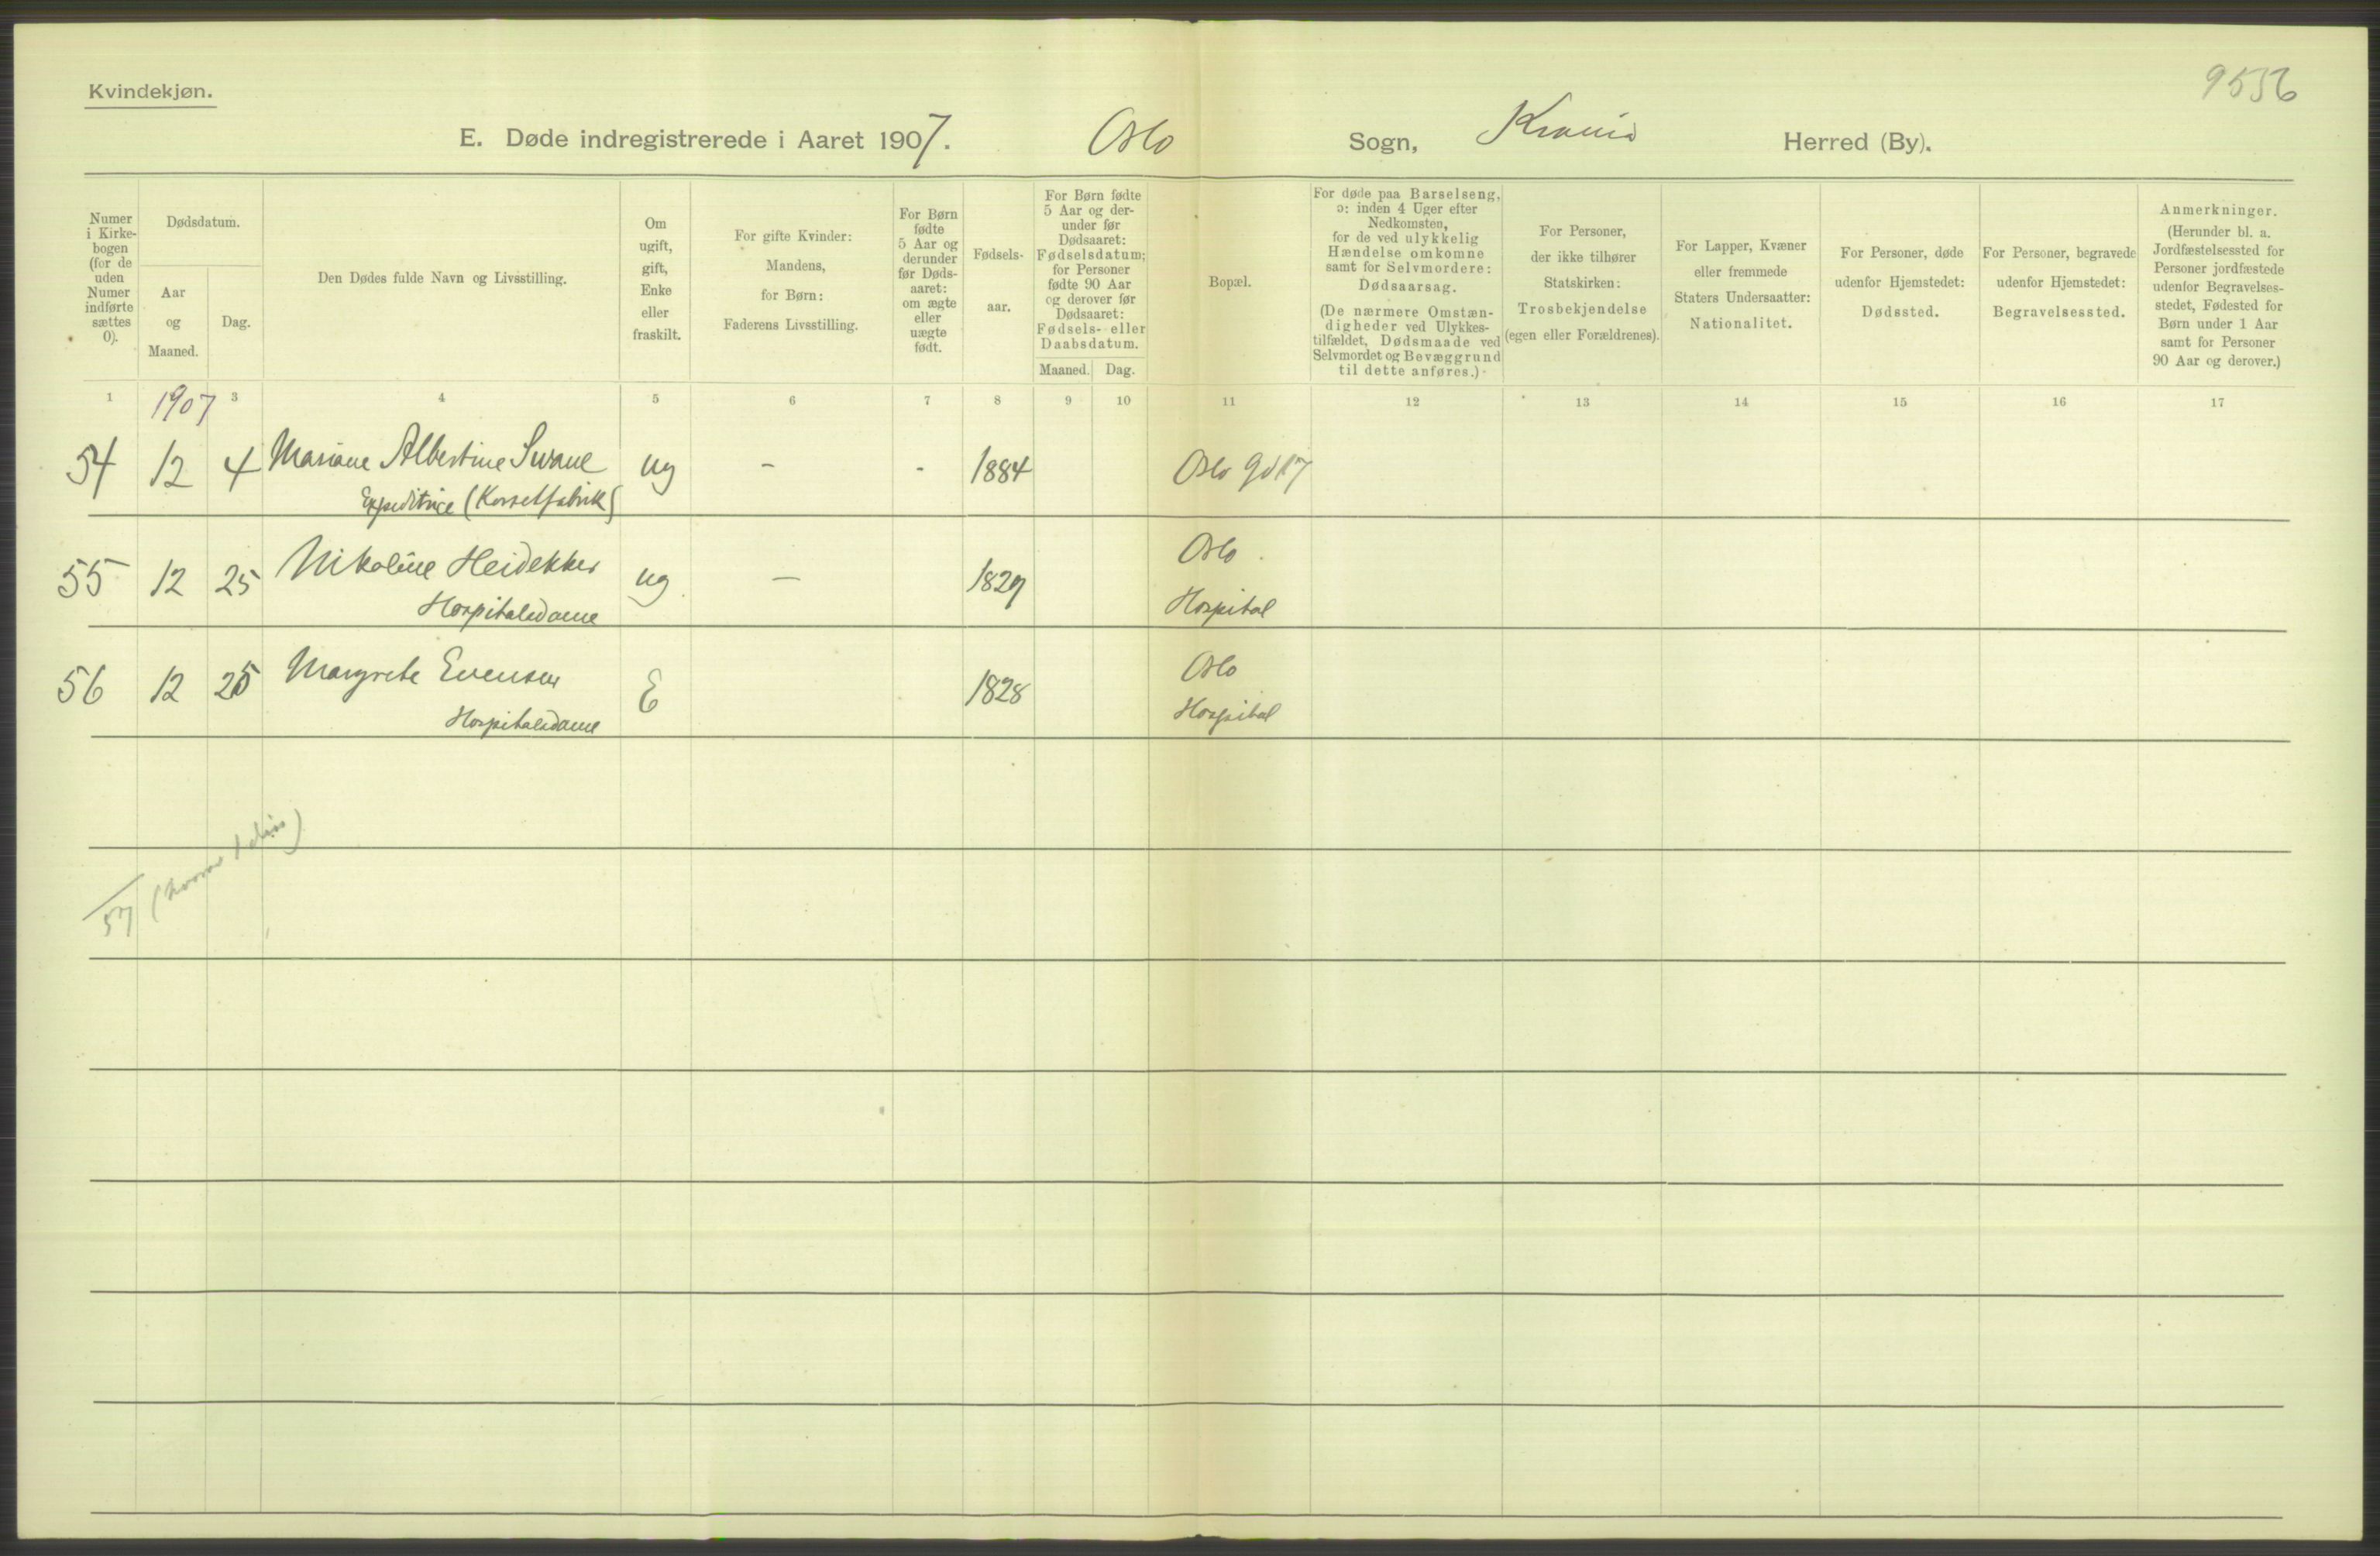 Kvindekjøn.
9556
E. Døde indregistrerede i Aaret 1907. Oslo Sogn, Krania Herred (By).
Numer i Kirke-bogen (for de uden Numer indførte sættes 0).
Dødsdatum.
Aar og Maaned.
Dag.
Den Dødes fulde Navn og Livsstilling.
Om ugift, gift, Enke eller fraskilt.
For gifte Kvinder: Mandens, for Børn: Faderens Livsstilling.
For Børn fødte 5 Aar og derunder før Døds-aaret: om ægte eller uægte født.
Fødsels-aar.
For Børn fødte 5 Aar og der-under før Dødsaaret: Fødselsdatum; for Personer fødte 90 Aar og derover før Dødsaaret: Fødsels- eller Daabsdatum.
Maaned. Dag.
Bopæl.
For døde paa Barselseng, ɔ: inden 4 Uger efter Nedkomsten, for de ved ulykkelig Hændelse omkomne samt for Selvmordere: Dødsaarsag.
(De nærmere Omstæn-digheder ved Ulykkes-tilfældet, Dødsmaade ved Selvmordet og Bevæggrund til dette anføres.)
For Personer, der ikke tilhører Statskirken: Trosbekjendelse (egen eller Forældrenes).
For Lapper, Kvæner eller fremmede Staters Undersaatter: Nationalitet.
For Personer, døde udenfor Hjemstedet: Dødssted.
For Personer, begravede udenfor Hjemstedet: Begravelsessted.
Anmerkninger. (Herunder bl. a. Jordfæstelsessted for Personer jordfæstede udenfor Begravelses-stedet, Fødested for Børn under 1 Aar samt for Personer 90 Aar og derover.)
1 1907 3 4 5 6 7 8 9 10 11 12 13 14 15 16 17
54 12 4 Mariane Albertine Swane ug - - 1884 Oslo gd 17
Expeditrice (Korsetfabrik)
55 12 25 Nikoline Heidekker ug - 1829 Oslo
Hospitalsdame Hospital
56 12 25 Margrete Evensen E 1828 Oslo
Hospitalsdame Hospital
57